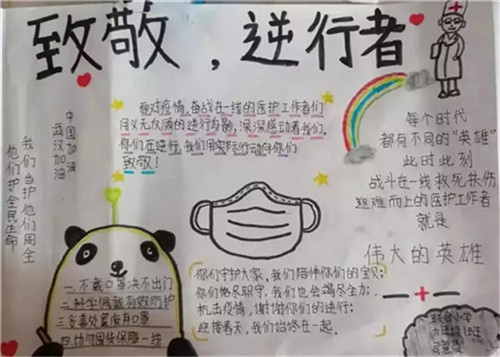 致敬，逆行者
中国加油
武汉加油
我们当护他们周全
他们护全民生命
面对疫情，奋战在一线的医护工作者们
用义无反顾的逆行身影，深深感动着我们。
你们在逆行，我们用实际行动向你们
致敬！
每个时代
都有不同的"英雄
此时此刻
战斗在一线救死扶伤
迎难而上的医护工作者
就是
伟大的英雄
一.不戴口罩决不出门
二.科学佩戴有效防护
三.妥善处置废弃口罩
四.请勿囤货保障一线
你们守护大家，我们陪伴你们的宝贝；
你们恪尽职守，我们也会竭尽全力；
抗击疫情，谢谢你们的逆行；
迎接春天，我们始终在一起。
小学